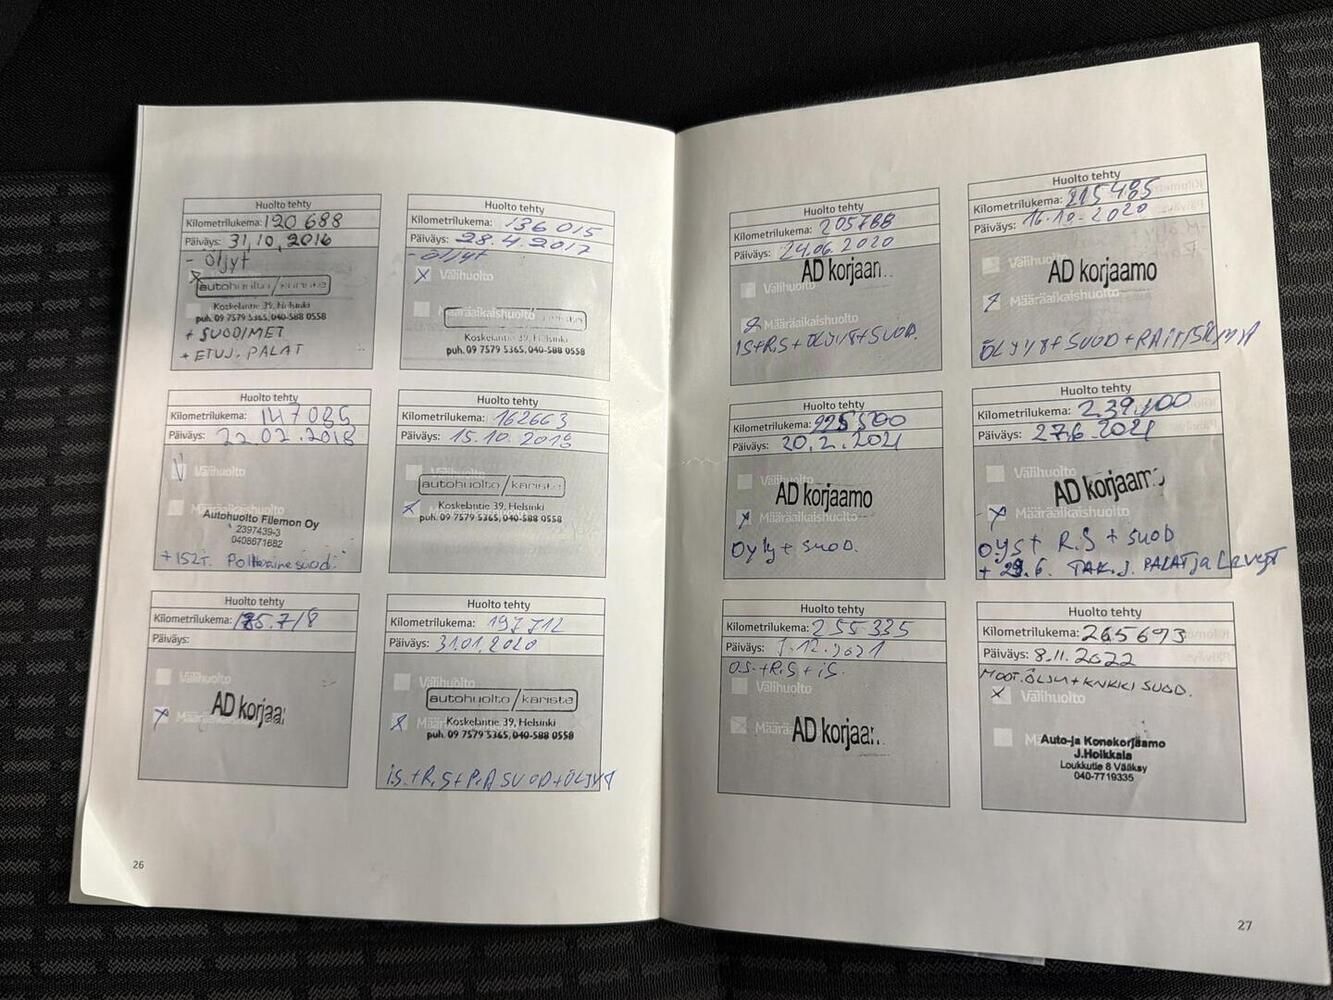 Huolto tehty
Kilometrilukema: 120 688
Päiväys: 31.10.2016
- Öljyt
autohuolto/kariste
Koskelantie 39, Helsinki
puh. 09 7579 5365, 040-588 0558
+ SUODIMET
+ ETUJ. PALAT
Huolto tehty
Kilometrilukema: 136 015
Päiväys: 28.4.2017
- öljyt
Välihuolto
Koskelantie 39, Helsinki
puh. 09 7579 5365, 040-588 0558
Huolto tehty
Kilometrilukema: 147 085
Päiväys: 22.02.2018
Välihuolto
Autohuolto Filemon Oy
2397439-3
0408671682
+ ISZT.
Huolto tehty
Kilometrilukema: 162663
Päiväys: 15.10.2018
autohuolto/kariste
Koskelantie 39, Helsinki
puh. 09 7579 5365, 040-588 0558
Huolto tehty
Kilometrilukema: 185.718
Päiväys:
Välihuolto
AD korjaa
Huolto tehty
Kilometrilukema: 197712
Päiväys: 31.01.2020
Välihuolto
autohuolto/kariste
Koskelantie 39, Helsinki
puh. 09 7579 5365, 040-588 0558
iS.+R.S+P.A SUOD+ÖLJYT
26
Huolto tehty
Kilometrilukema: 205788
Päiväys: 24.06.2020
AD korjaam
Välihuolto
Määräaikaishuolto
iS+R.S+ÖLJYT+SUOD.
Huolto tehty
Kilometrilukema: 215485
Päiväys: 16.10.2020
Välihuolto
AD korjaamo
Määräaikaishuolto
ÖLJYT+SUOD+
Huolto tehty
Kilometrilukema: 225500
Päiväys: 20.2.2021
Välihuolto
AD korjaamo
Määräaikaishuolto
Öyly+SUOD.
Huolto tehty
Kilometrilukema: 239,100
Päiväys: 27.6.2021
Välihuolto
AD korjaamo
Määräaikaishuolto
Ö.YS+ R.S + SUOD
+ 29.6. TAK.J. PALAT ja Levyt
Huolto tehty
Kilometrilukema: 255335
Päiväys: 7.12.2021
ÖS.+R.S+iS.
Välihuolto
AD korjaa
Huolto tehty
Kilometrilukema: 265693
Päiväys: 8.11.2022
MOOT.ÖLJY+KAIKKI SUOD.
Välihuolto
Auto-ja Konekorjaamo
J.Hoikkala
Loukkutie 8 Vääksy
040-7719335
27